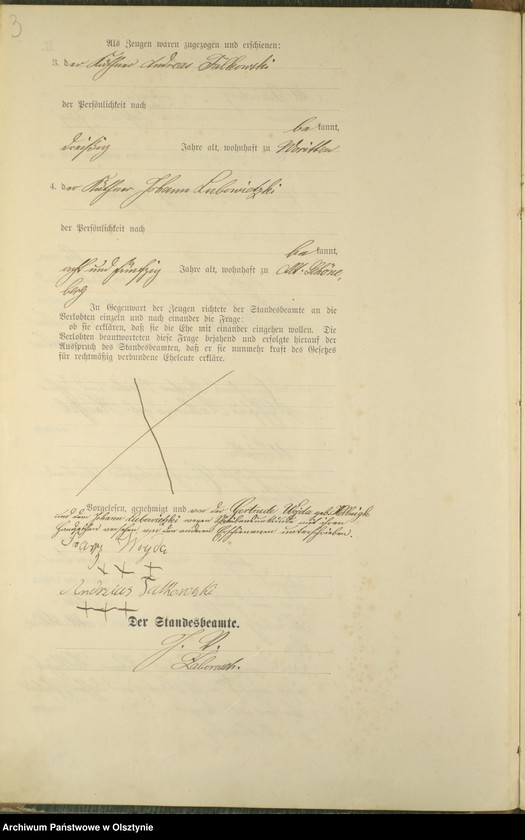 3
Als Zeugen waren zugezogen und erschienen:
3. der Käthner Andreas Falkowski
der Persönlichkeit nach
be kannt,
dreißig Jahre alt, wohnhaft zu Woritten
4. der Käthner Johann Lubowietzki
der Persönlichkeit nach
be kannt,
acht und fünfzig Jahre alt, wohnhaft zu Alt-Schöne,
berg
In Gegenwart der Zeugen richtete der Standesbeamte an die
Verlobten einzeln und nach einander die Frage:
ob sie erklären, daß sie die Ehe mit einander eingehen wollen. Die
Verlobten beantworteten diese Frage bejahend und erfolgte hierauf der
Ausspruch des Standesbeamten, daß er sie nunmehr kraft des Gesetzes
für rechtmäßig verbundene Eheleute erkläre.
Vorgelesen, genehmigt und von der Gertrude Woyda geb.
und dem Johann Lubowietzki wegen Schreibensunkunde mit ihren
Handzeichen versehen von den anderen Erschienenen unterschrieben.
Franz Woyda
+ + +
Andreas Falkowski
+++
Der Standesbeamte.
J. V.